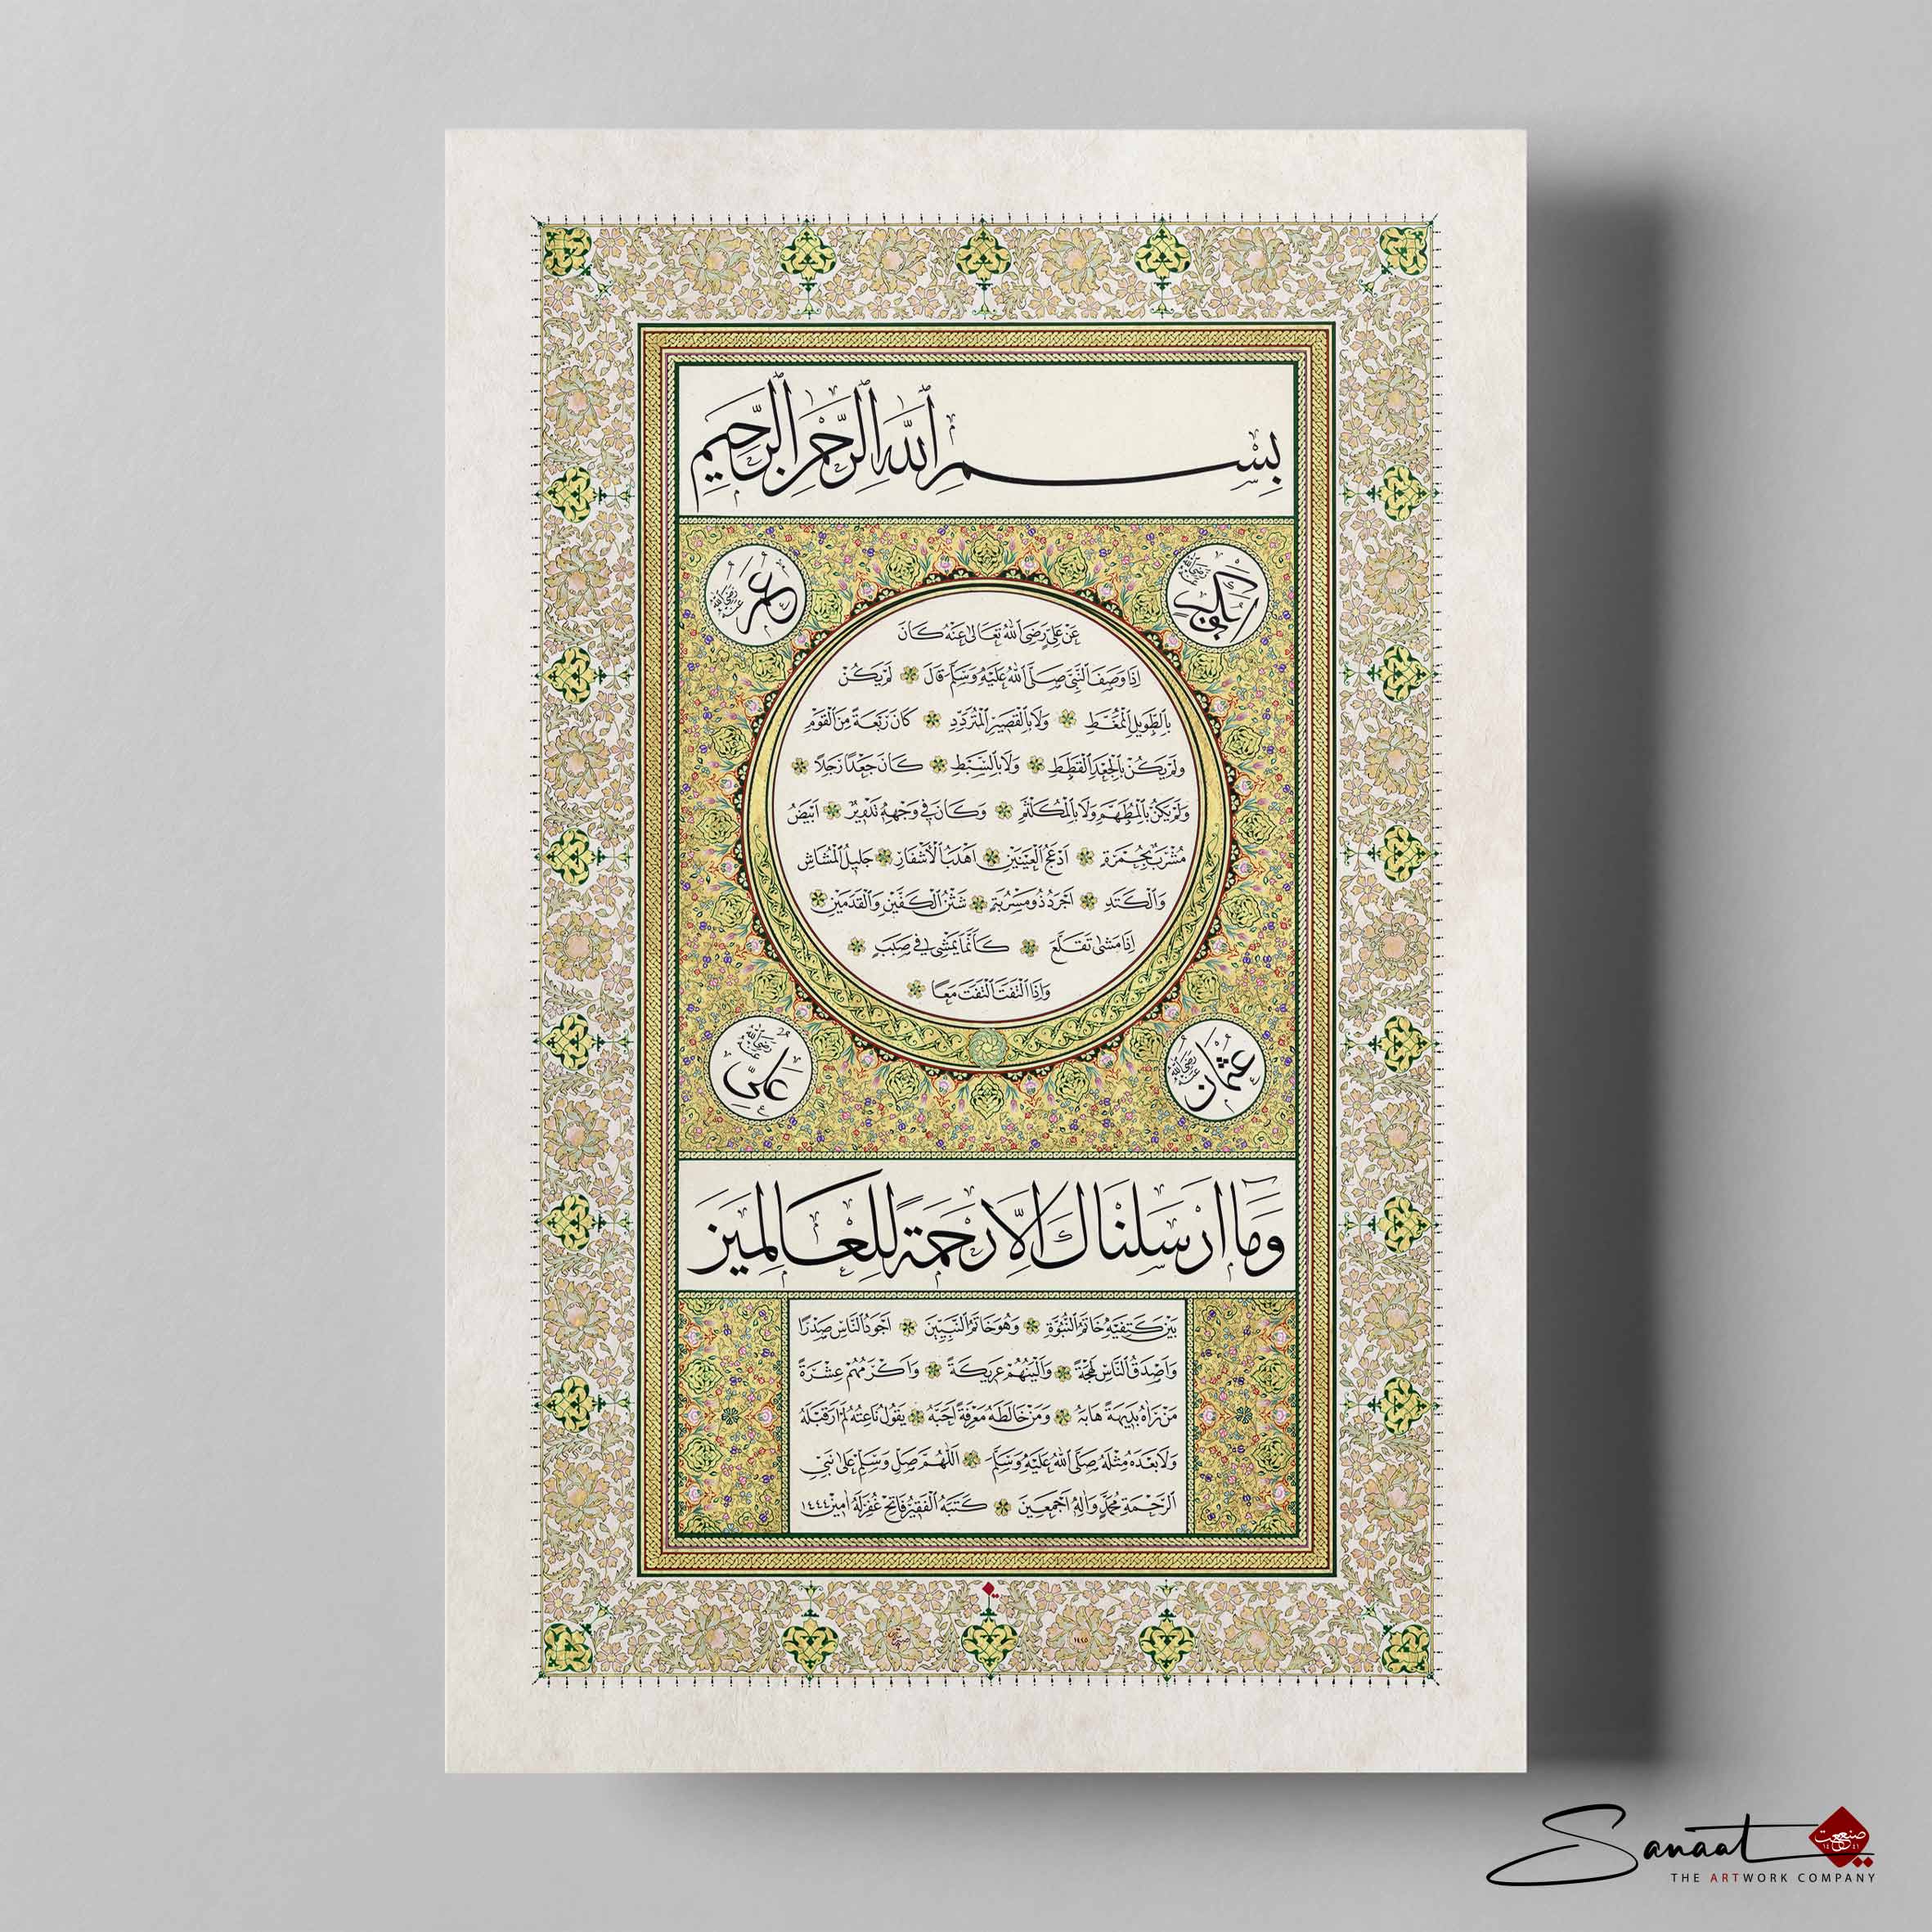 بِسْمِ ٱللَّهِ ٱلرَّحْمٰنِ ٱلرَّحِيمِ
ابوبكر رضي الله عنه
عمر رضي الله عنه
عَنْ عَلِيٍّ رَضِيَ اللهُ تَعَالٰى عَنْهُ كَانَ
اِذَا وَصَفَ النَّبِيَّ صَلَّى اللهُ عَلَيْهِ وَسَلَّمَ قَالَ لَمْ يَكُنْ
بِالطَّوِيلِ الْمُمَّغَطِ وَلَا بِالْقَصِيرِ الْمُتَرَدِّدِ كَانَ رَبْعَةً مِنَ الْقَوْمِ
وَلَمْ يَكُنْ بِالْجَعْدِ الْقَطَطِ وَلَا بِالسَّبْطِ كَانَ جَعْدًا رَجِلًا
وَلَمْ يَكُنْ بِالْمُطَهَّمِ وَلَا بِالْمُكَلْثَمِ وَكَانَ فِي وَجْهِهِ تَدْوِيرٌ اَبْيَضُ
مُشْرَبٌ بِحُمْرَةٍ اَدْعَجُ الْعَيْنَيْنِ اَهْدَبُ الْاَشْفَارِ جَلِيلُ الْمُشَاشِ
وَالْكَتَدِ اَجْرَدُ ذُو مَسْرُبَةٍ شَثْنُ الْكَفَّيْنِ وَالْقَدَمَيْنِ
اِذَا مَشٰى تَقَلَّعَ كَاَنَّمَا يَمْشِي فِي صَبَبٍ
وَاِذَا الْتَفَتَ الْتَفَتَ مَعًا
عثمان رضي الله عنه
علي رضي الله عنه
وَمَا اَرْسَلْنَاكَ اِلَّا رَحْمَةً لِلْعَالَمِينَ
بَيْنَ كَتِفَيْهِ خَاتَمُ النُّبُوَّةِ وَهُوَ خَاتَمُ النَّبِيِّينَ اَجْوَدُ النَّاسِ صَدْرًا
وَاَصْدَقُ النَّاسِ لَهْجَةً وَاَلْيَنُهُمْ عَرِيكَةً وَاَكْرَمُهُمْ عِشْرَةً
مَنْ رَاٰهُ بَدِيهَةً هَابَهُ وَمَنْ خَالَطَهُ مَعْرِفَةً اَحَبَّهُ يَقُولُ نَاعِتُهُ لَمْ اَرَ قَبْلَهُ
وَلَا بَعْدَهُ مِثْلَهُ صَلَّى اللهُ عَلَيْهِ وَسَلَّمَ اَللّٰهُمَّ صَلِّ وَسَلِّمْ عَلٰى نَبِيِّ
الرَّحْمَةِ مُحَمَّدٍ وَاٰلِهِ اَجْمَعِينَ كَتَبَهُ الْفَقِيرُ فَاتِحْ غُفِرَ لَهُ اٰمِينْ ١٤٤٤
Sanaat صنعت
THE ARTWORK COMPANY